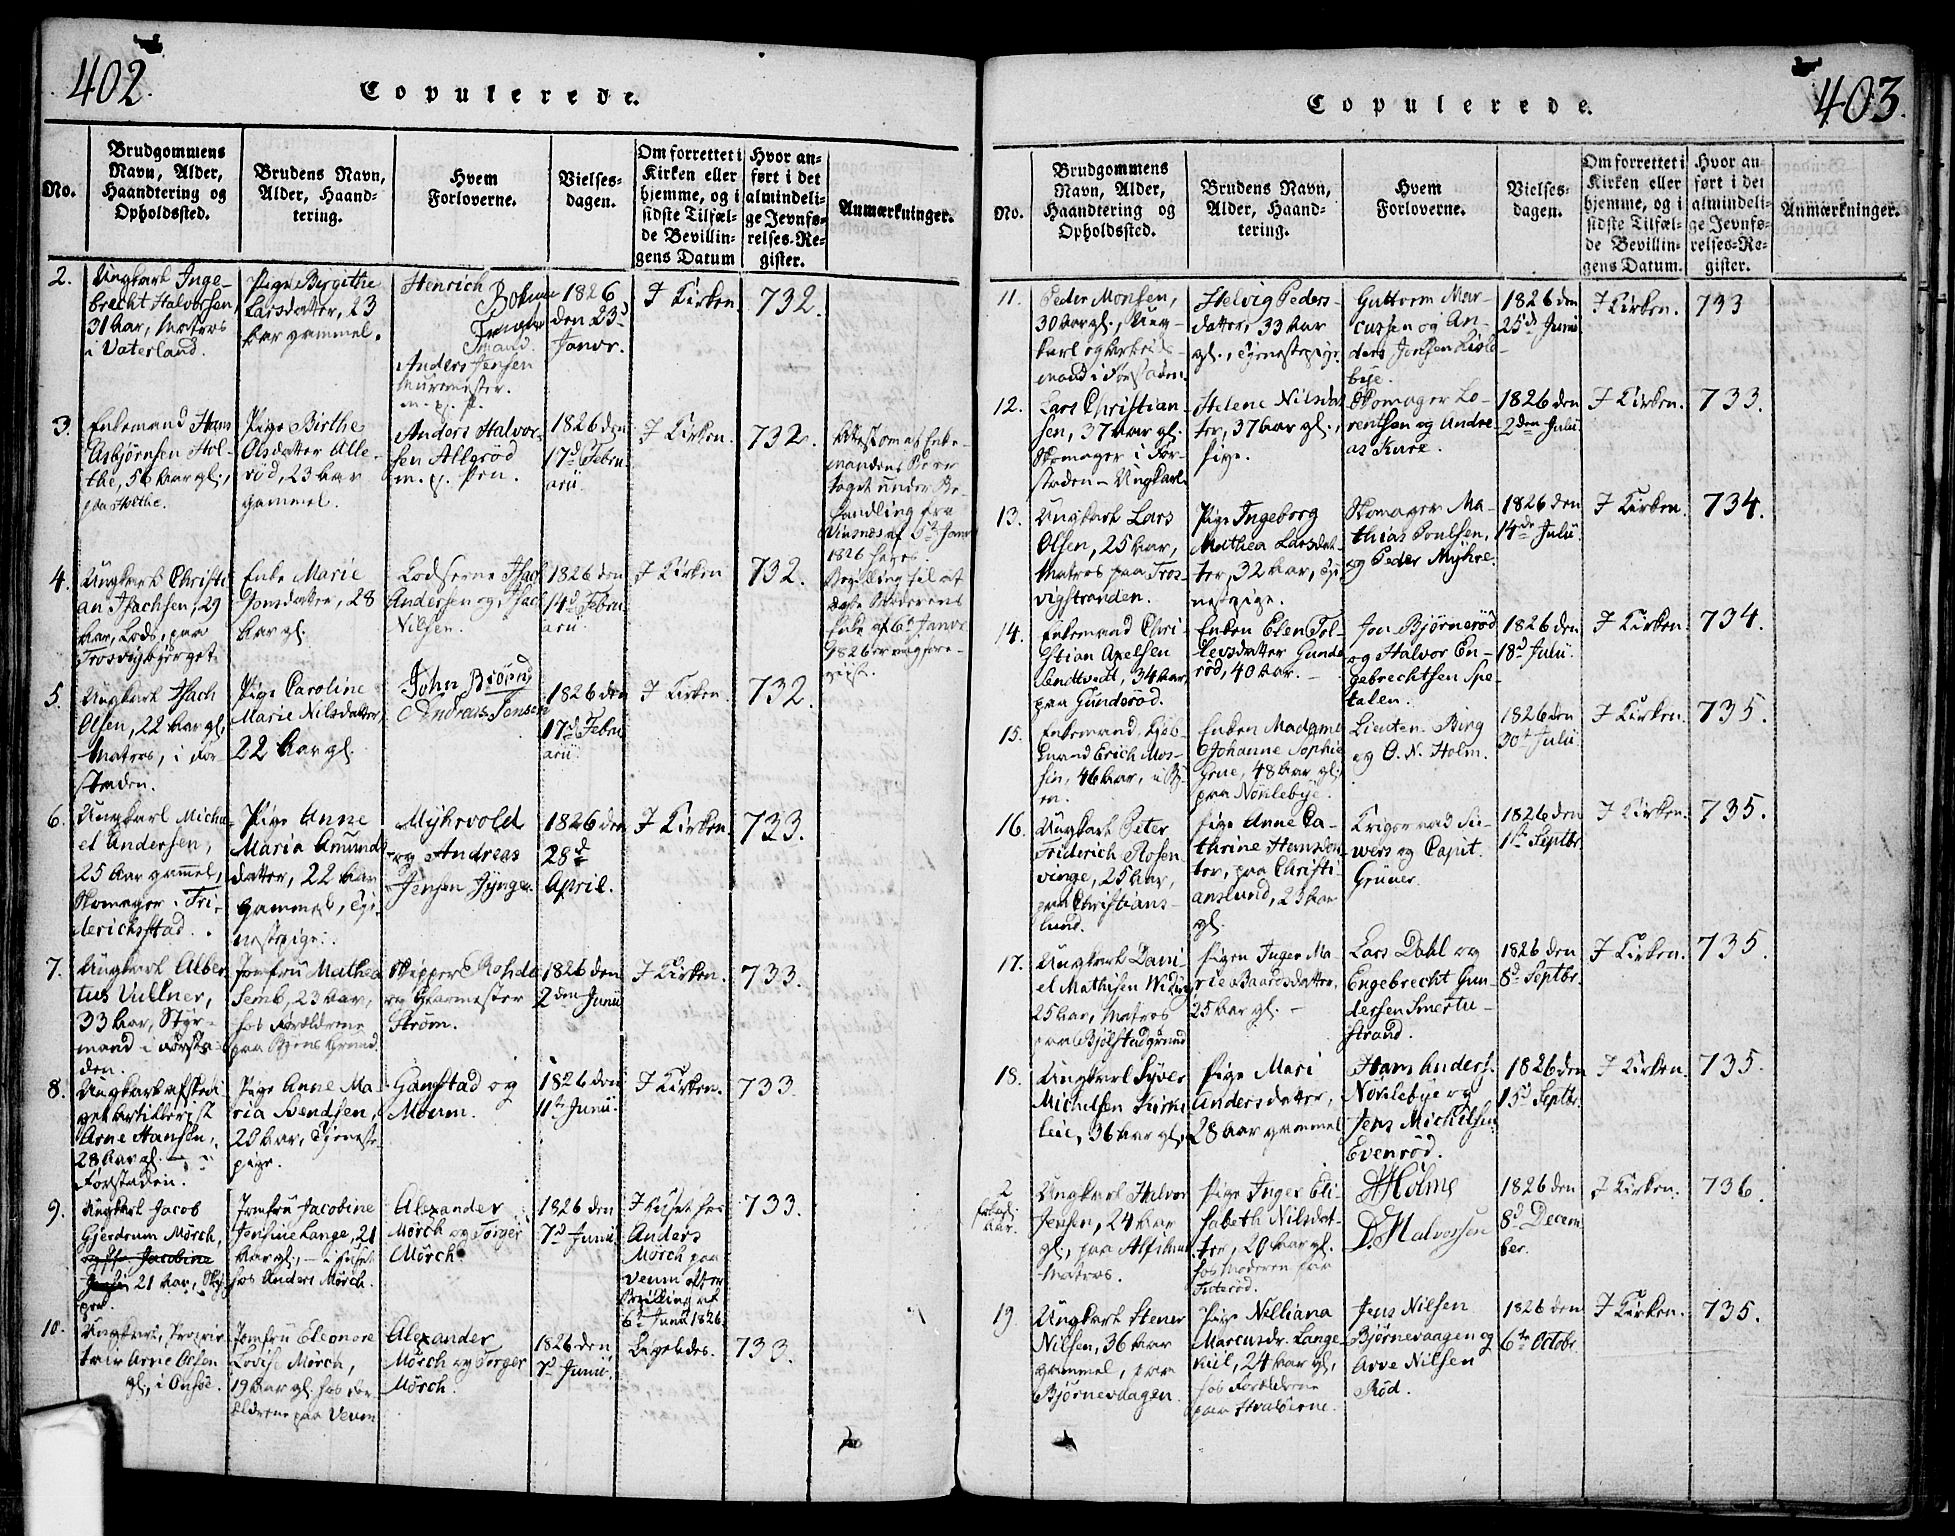 402.
Copulerede.
No.
Brudgommens
Navn, Alder,
Haandtering og
Opholdssted.
Brudens Navn,
Alder, Haand-
tering.
Hvem
Forloverne.
Vielses-
dagen.
Om forrettet i
Kirken eller
hjemme, og i
sidste Tilfæl-
de Bevillin-
gens Datum
Hvor an-
ført i det
almindeli-
ge Jevnfø-
relses-Re-
gister.
Anmærkninger.
2.
Ungkarl Inge-
brecht Halvorsen,
31 Aar, Matros
i Vaterland.
Pige Birgithe
Larsdatter, 23
Aar gammel.
Henrich
Anders Jensen
Murmester.
m. p. p.
1826
den 23d
Janvr.
I Kirken
732.
3.
Enkemand Hans
Asbjørnsen Hol-
the, 56 Aar gl.,
paa Holthe.
Pige Birthe
Olsdatter Alle-
rød, 23 Aar
gammel.
Anders Halvor-
sen Allerød
m. p. Pen.
1826 den
17d Febru
arii
I Kirken.
732.
Attest om at Enke-
mandens Bo er
taget under Be-
handling fra
af 5te Janv
1826
Bevilling til at
ægte Broderens
Enke af 6te Janvr
1826 er
4.
Ungkarl Christi
an Isachsen, 29
Aar, Lods, paa
Trosvigbjerget.
Enke Marie
Jonsdatter, 28
Aar gl.
Lodserne Isach
Andersen og Isac
Nilsen.
1826 den
14d Febru
arii
I Kirken
732.
5.
Ungkarl Isach
Olsen, 22 Aar gl.
Matros, i For
staden.
Pige Caroline
Marie Nilsdatter,
22 Aar gl.
John Brøen
Andreas Jensen
1826 den
17d Febru
arii
I Kirken.
732.
6.
Ungkarl Micha-
el Andersen,
25 Aar gammel,
Skomager i Fri-
derichsstad.
Pige Anne
Maria Amunds
datter, 22 Aar
gammel, Tje-
nestepige.
Myhrvold
og Andreas
Jensen
1826 den
28d
April.
I Kirken.
733.
7.
Ungkarl Alber
tus Vullner,
33 Aar, Styr-
mand i Forsta-
den.
Jomfru Mathea
Semb, 23 Aar,
hos Forældrene
paa Byens Grund
Skipper Rohde
og Glarmester
Strøm.
1826 den
2den Junii
I Kirken.
733.
8.
Ungkarl
get Artillerist
Arne Hansen,
28 Aar gl. i
Forstaden.
Pige Anne Ma-
ria Svendsen,
20 Aar, Tjeneste
pige.
Gamstad og
Moum.
1826 den
11te Junii.
I Kirken.
733.
9.
Ungkarl Jacob
Gjerdrum Mørch,
Jacobine
21 Aar,
Jomfru Jacobine
Jensine Lange, 21
Aar gl., i Huset
hos Anders Mørch.
Alexander
Mørch og Torger
Mørch.
1826 den
7d Junii
I Huset hos
Anders
Mørch paa
Veum efter
Bevilling af
6te Junii 1826
733.
10.
Ungkarl, Proprie
tair Arne Olsen
gl., i Onsøe.
Jomfru Eleonore
Lovise Mørch,
19 Aar gl. hos For
ældrene paa Veum
Alexander
Mørch og Torger
Mørch.
1826 den
7d Junii.
Ligeledes.
733.
403.
Copulerede.
No.
Brudgommens
Navn, Alder,
Haandtering og
Opholdssted.
Brudens Navn,
Alder, Haand-
tering.
Hvem
Forloverne.
Vielses-
dagen.
Om forrettet i
Kirken eller
hjemme, og i
sidste Tilfæl-
de Bevillin-
gens Datum.
Hvor an-
ført i det
almindeli-
ge Jevnfø-
relses-Re-
gister.
Anmærkninger.
11.
Peder Monsen,
30 Aar gl., Ung-
karl og Arbeids-
mand i Forstaden.
Helvig Peders-
datter, 33 Aar
gl., Tjenestepige.
Guttorm Mar-
cussen og An-
ders Jonsen Lisle
bye.
1826 den
25d Junii
I Kirken.
733
12.
Lars Christian-
sen, 37 Aar gl.
Skomager i For-
staden - Ungkarl.
Helene Nilsdat
ter, 37 Aar gl.,
Pige.
Skomager Lo-
rentsen og Andre-
as Kure.
1826 den
2den Julii
I Kirken.
733.
13.
Ungkarl Lars
Olsen, 25 Aar,
Matros paa Tros-
vigstranden.
Pige Ingeborg
Mathea Larsdat-
ter, 32 Aar, Tje-
nestepige.
Skomager Ma-
thias Poulsen,
og Peder Myhre.
1826 den
14de Julii
I Kirken.
734.
14.
Enkemand Chri-
stian Axelsen
34 Aar,
paa Gunderød.
Enken Elen Tol-
levsdatter Gunde
rød, 40 Aar.
Jon Bjørnerød
og Halvor En-
gebrechtsen Spe-
talen.
1826 den
18d Julii.
I Kirken.
734.
15.
Enkemand, Kjøb-
mand Erich Mos-
sin, 46 Aar, i By-
en.
Enken Madame
Johanne Sophie
Grue, 48 Aar gl.
paa Nørlebye.
Lieuten. Birg
og O. N. Holm.
1826 den
30d Julii
I Kirken.
735.
16.
Ungkarl Peter
Friderich Rosen
vinge, 25 Aar,
paa Christians-
lund.
Pige Anne Ca-
thrine Hansdat-
ter, paa Christi
anslund, 23 Aar
gl.
Krigsraad Si-
wers og Capit.
Grüner.
1826 den
1ste Septbr
I Kirken.
735.
17.
Ungkarl Dani-
el Mathisen
25 Aar, Matros
paa Bjølstadgrund
Pigen Inger Ma
rie Baardsdatter,
25 Aar gl.
Lars Dahl og
Engebrecht Gun-
dersen Smertu-
strand.
1826 den
8d Septbr.
I Kirken.
735.
18.
Ungkarl Syver
Michelsen Kirke
leie, 36 Aar gl.,
Pige Mari
Andersdatter,
28 Aar gammel
Hans Anders.
Nørlebye og
Jens Michelsen
Evenrød.
1826 den
15d Septbr.
I Kirken.
735.
2
Aar.
Ungkarl Halvor
Jensen, 24 Aar
gl., paa
Matros.
Pige Inger Eli-
sabeth Nilsdat-
ter, 20 Aar gl.
hos Moderen paa
Holme
D. Halvorsen
1826 den
8d Decem
ber.
I Kirken.
736.
19
Ungkarl Stener
Nilsen, 36 Aar
gammel, paa
Bjørnevaagen.
Pige Nilliana
Marcusdr. Lange-
kiil, 24 Aar gl,
hos Forældrene
paa Hvaløerne.
Jens Nilsen
Bjørnevaagen og
Arve Nilsen
Rød.
1826 den
6te Octobr
I Kirken.
735.